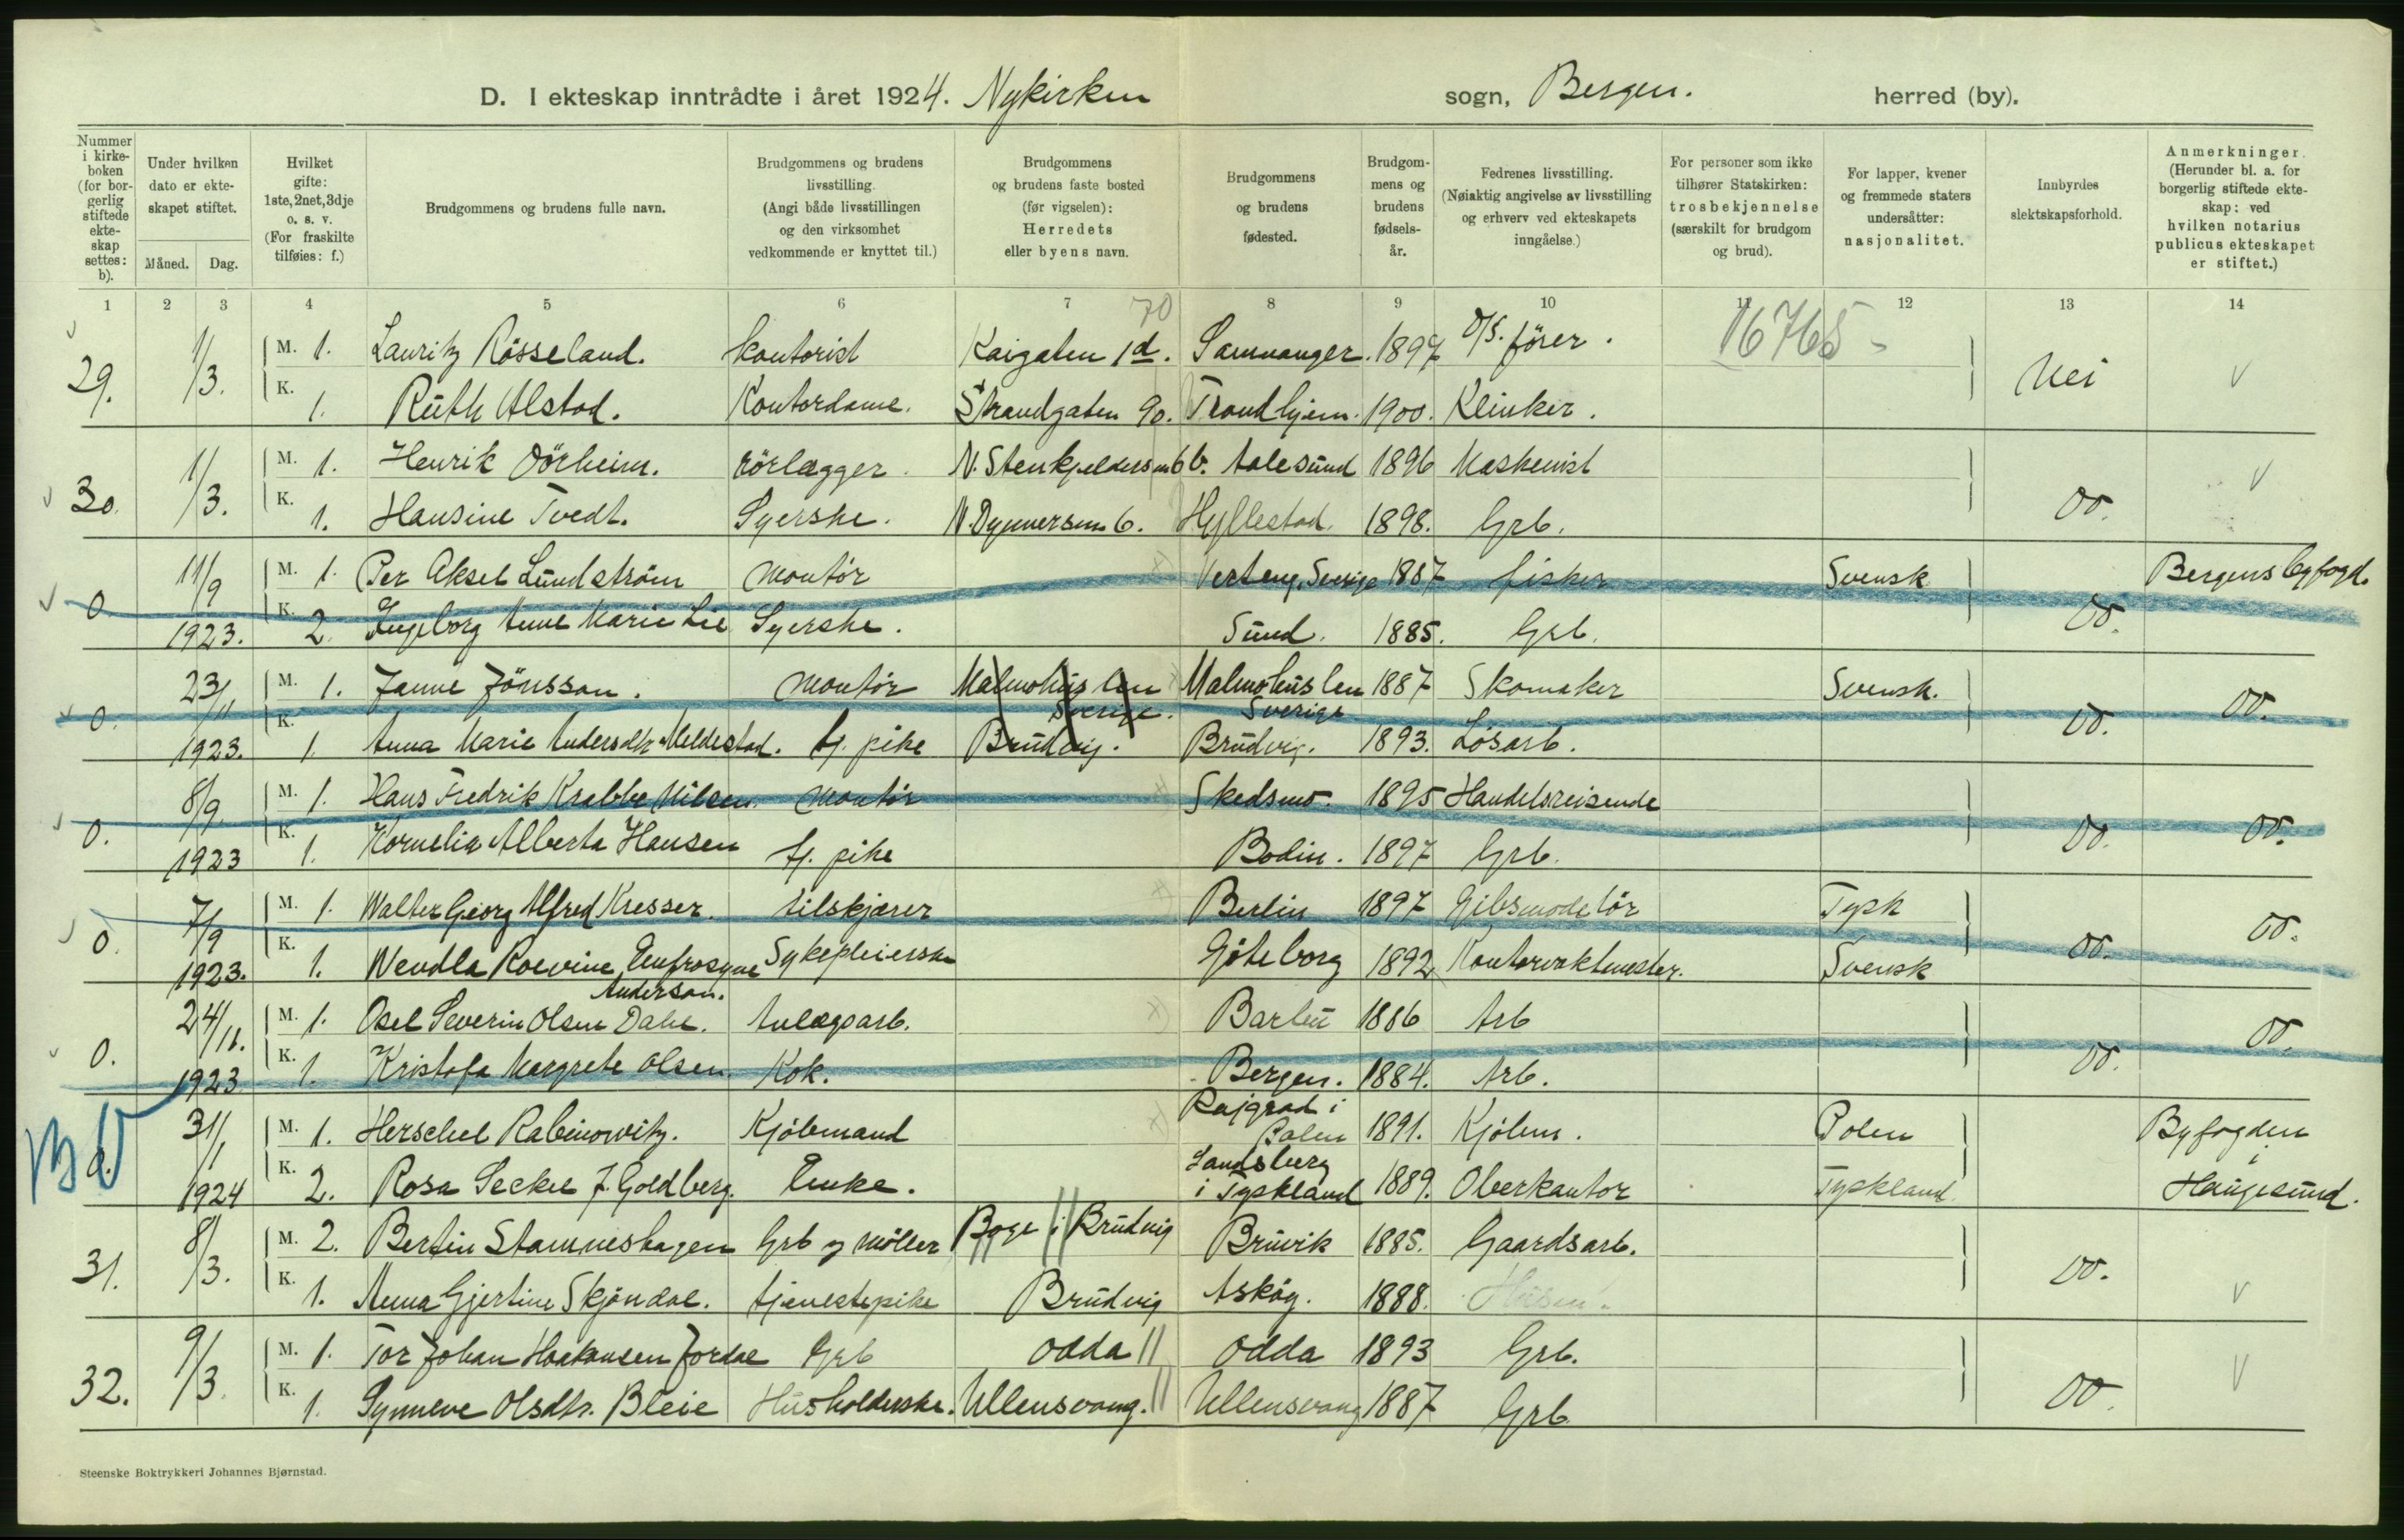 D. I ekteskap inntrådte i året 1924. Nykirken sogn, Bergen. herred (by).
Nummer i kirke-boken (for bor-gerlig stiftede ekte-skap settes: b).
Under hvilken dato er ekte-skapet stiftet.
Måned. Dag.
Hvilket gifte: 1ste, 2net, 3dje o. s. v. (For fraskilte tilføies: f.)
Brudgommens og brudens fulle navn.
Brudgommens og brudens livsstilling. (Angi både livsstillingen og den virksomhet vedkommende er knyttet til.)
Brudgommens og brudens faste bosted (før vigselen): Herredets eller byens navn.
Brudgommens og brudens fødested.
Brudgom-mens og brudens fødsels-år.
Fedrenes livsstilling. (Nøiaktig angivelse av livsstilling og erhverv ved ekteskapets inngåelse.)
For personer som ikke tilhører Statskirken: trosbekjennelse (særskilt for brudgom og brud).
For lapper, kvener og fremmede staters undersåtter: nasjonalitet.
Innbyrdes slektskapsforhold.
Anmerkninger. (Herunder bl. a. for borgerlig stiftede ekte-skap: ved hvilken notarius publicus ekteskapet er stiftet.)
1 2 3 4 5 6 7 8 9 10 11 12 13 14
70 16765
29. 1/3. M. 1. Lauritz Røsseland. Kontorist Kaigaten 1d. Samnanger. 1897 D/S. fører. Nei
K. 1. Ruth Alstad. Kontordame. Strandgaten 90. Trondhjem. 1900. Klinker.
30. 1/3. M. 1. Henrik Dörheim. rörlægger. N. Stenkjeldersm 6 b. Aalesund 1896 Maskinist do.
K. 1. Hansine Tvedt. Syerske. N. Dyvekersm 6. Hyllestad. 1898. Grb.
0 11/9 M. 1. Per Aksel Lundström Montör Sverige 1887 fisker Svensk Bergens byfogd.
1923. K. 2. Ingeborg Anne Marie Lie Syerske. Sund. 1885. Grb. do.
0. 23/11 M. 1. Janne Jönsson. Montör Malmøhus len Sverige. Malmøhus len Sverige 1887 Skomaker Svensk. do. do.
1923. K. 1. Anna Marie Andersdtr Meldestad. tj. pike Brudvig. Brudvig. 1893. Løsarb.
0. 8/9 M. 1. Hans Fredrik Krabbe Nilsen. Montör Skedsmo. 1895 Handelsreisende do. do.
1923 K. 1. Kornelia Alberta Hansen tj. pike Bodin. 1897 Grb.
0. 7/9 M. 1. Walter Georg Alfred Kresser. tilskjærer Berlin 1897 Gibsmodelör Tysk do. do.
1923. K. 1. Wendla Roevine Eufrosyne Anderson. Sykepleierske Göteborg 1892 Kontorvaktmester. Svensk
0. 24/11. M. 1. Osel Severin Olsen Dahl. Anlegsarb. Bardu 1886 Arb do. do.
1923 K. 1. Kristofa Margrete Olsen. Kok. Bergen. 1884. Arb.
0. 31/1 M. 1. Herschel Rabinowitz. Kjöbmand Rajgrad i Polen 1891. Kjöbm. Polen Byfogden i
1924 K. 2. Rosa Seckel f. Goldberg. Enke. Landsberg i Tyskland 1889. Oberkantor Tyskland Haugesund.
31. 8/3. M. 2. Bertin Stamneshagen Grb og møller Boge i Brudvig Bruvik 1885. Gaardsarb. do.
K. 1. Anna Gjertine Skjöndal. tjenestepike Brudvig Askøy. 1888.
32. 9/3. M. 1. Tor Johan Haakonsen Jordal Grb Odda Odda 1893 Grb. do.
K. 1. Synneve Olsdtr. Bleie Husholderske. Ullensvang. Ullensvang 1887 Grb
Steenske Boktrykkeri Johannes Bjørnstad.